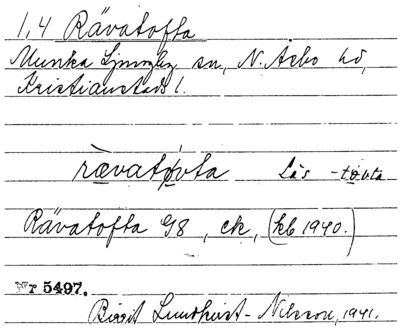 1,4 Rävatofta
Munka Ljungby sn, N. Åsbo hd,
Kristianstads l.
rævatóvta Läs -tòvta
Rävatofta 98, ek, (kb 1940.)
Nr 5497.
Birgit Lundqvist-Nilsson, 1941.